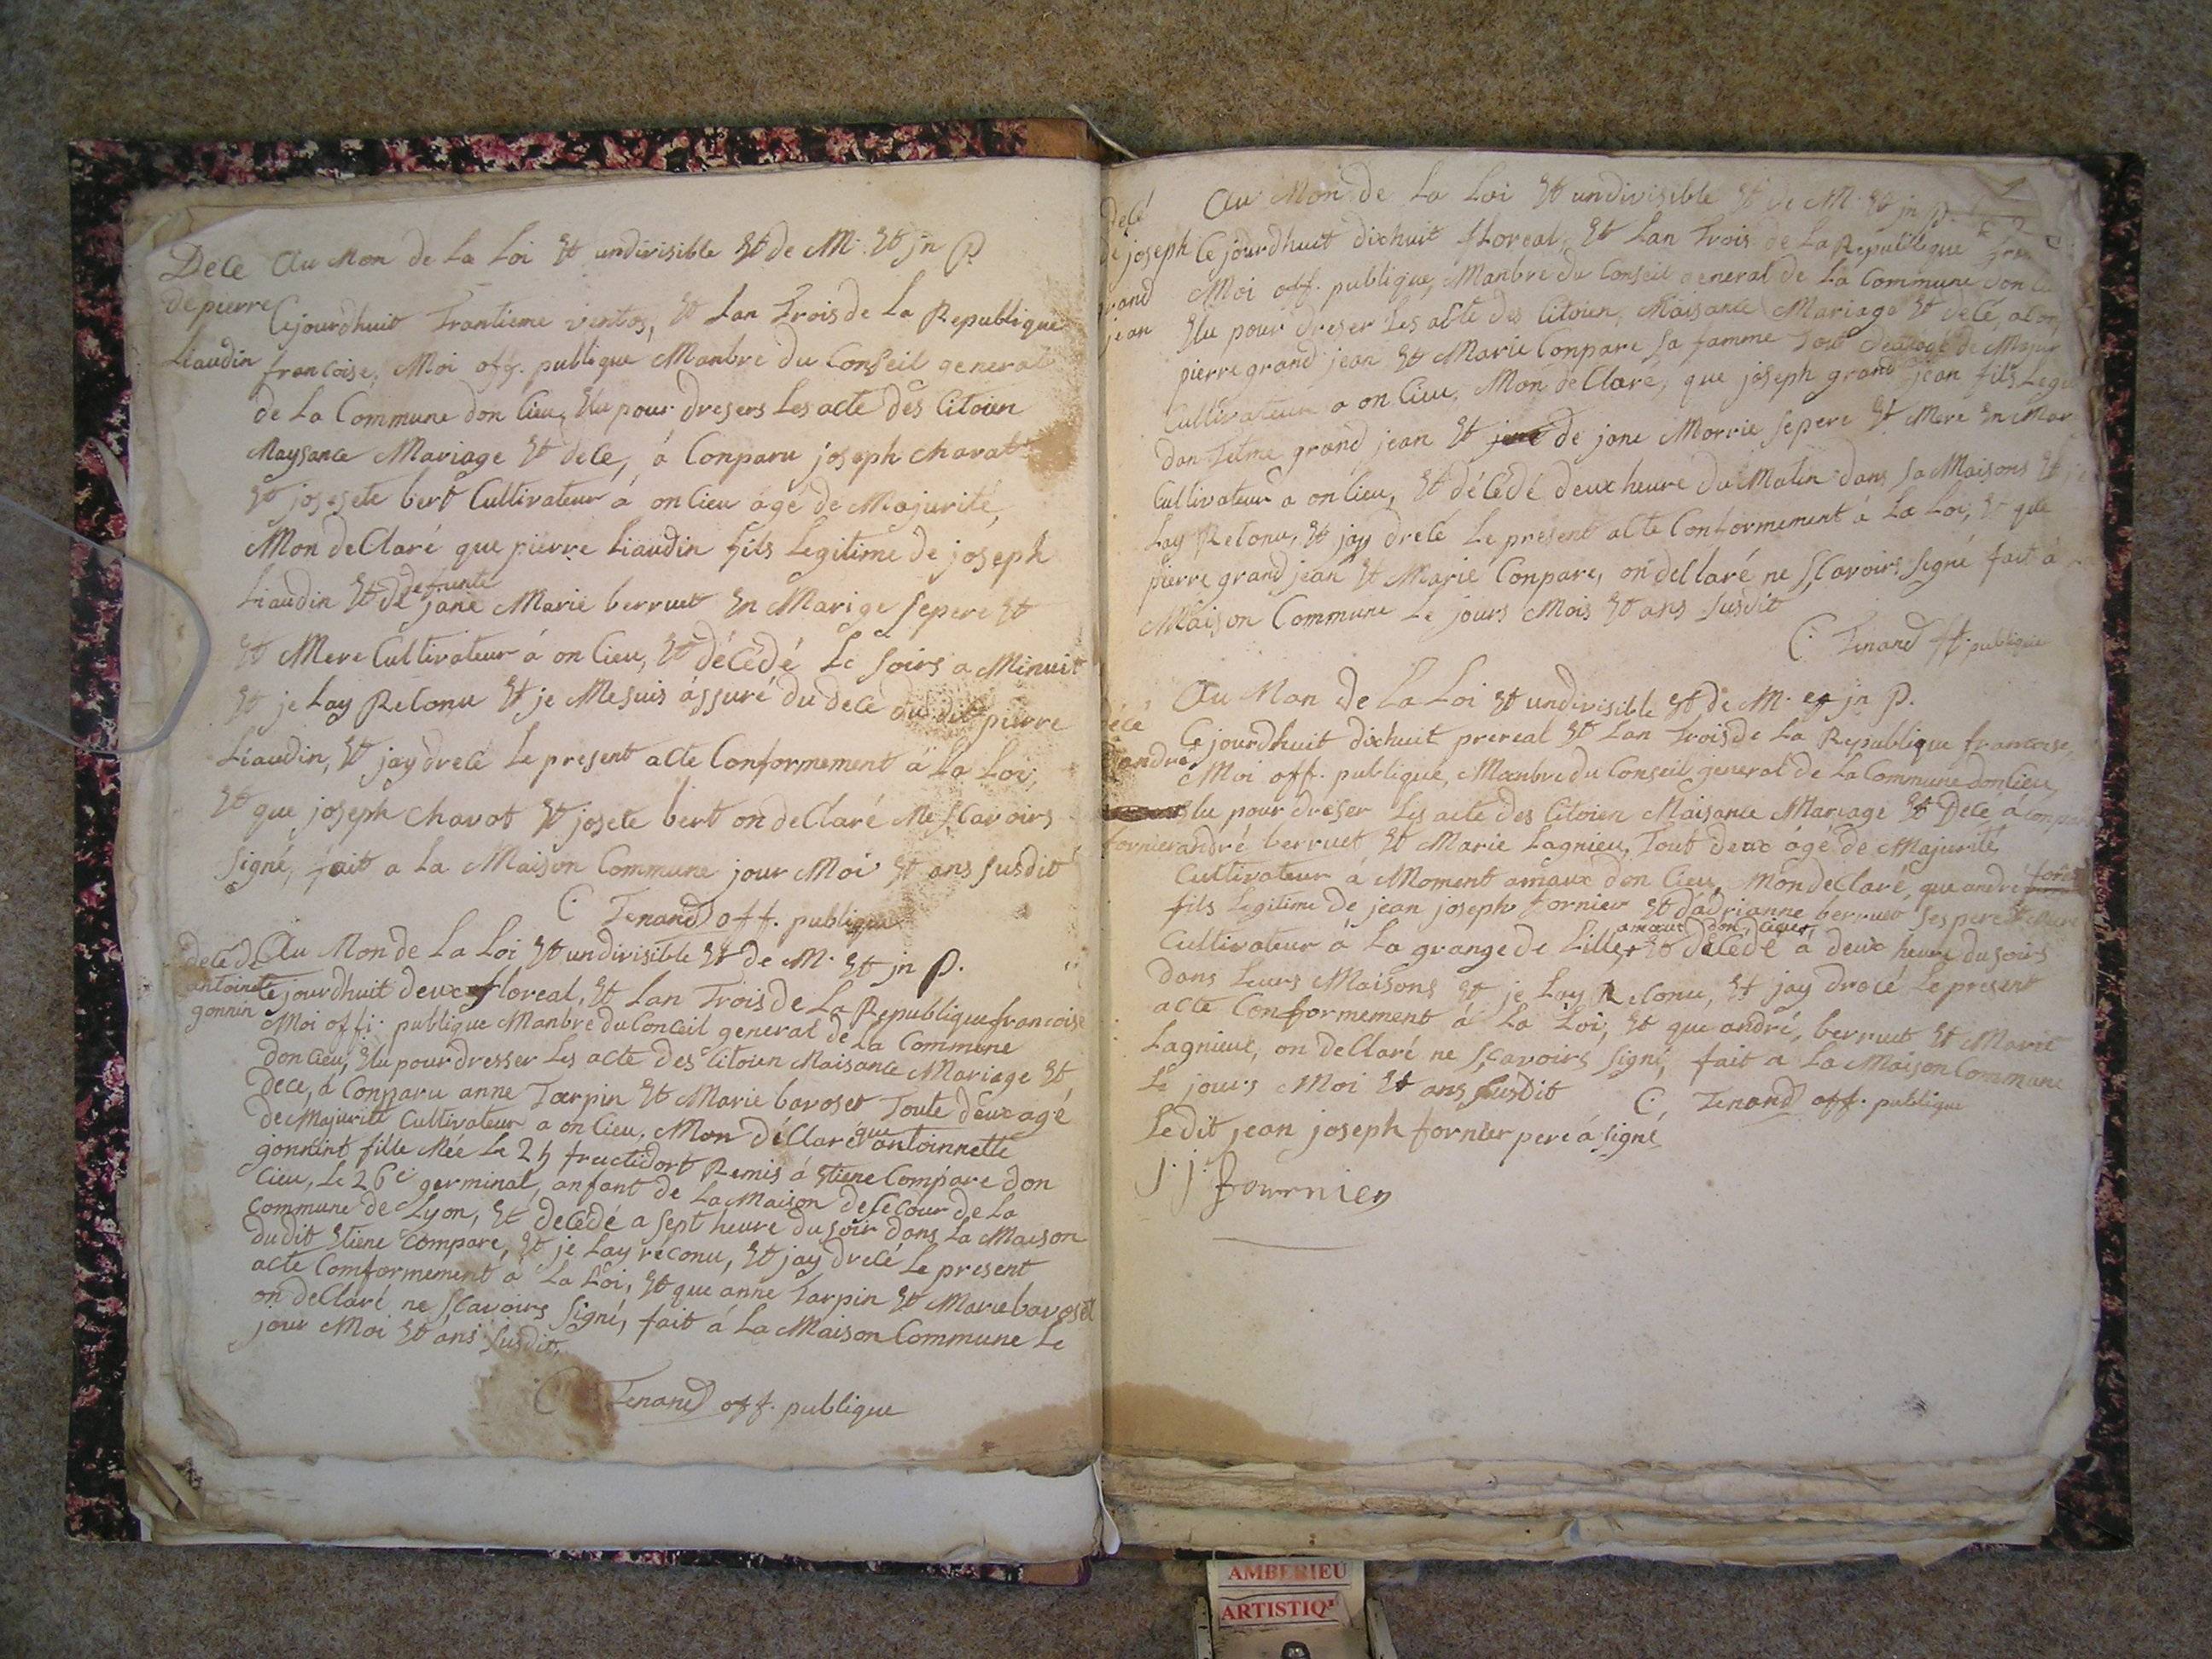 Dece Au Mon de La Loi Et undivisible Et de M. Et jn P
de pierre Cejourdhuit Trantieme ventos, Et Lan Trois de La Republique
Liaudin francoise, Moi off. publique Manbre du Conseil general
de La Commune don Cieu, Elu pour dresers Les acte des Citoien
Naysance Mariage Et dece, á Conparu joseph chavat
Et josesete bert Cultivateur á on Cieu agé de Majurité,
Mon deClaré que pierre Liaudin fils Legitime de joseph
defunte
Liaudin Et de jane Marie berruet En Marige sepere Et
Et Mere Cultivateur á on Cieu, Et décédé Le soirs a Minuit
Et je Lay Reconu Et je Mesuis assuré du dece du dit pierre
Liaudin, Et jay drecé Le present acte Conformement a La Loi,
Et que joseph chavat Et josete bert on deClaré Ne sCavoirs
signé, fait a La Maison Commune jour Moi Et ans susdit
C. Tenand off. publique
decé de Au Mon de La Loi Et undivisible Et de M. Et jn P.
antoinete Cejourdhuit deux floreal, Et Lan Trois de La Republique francoise
gonnin Moi offi. publique Manbre du Conceil general de La Commune
don Cieu, Elu pour dresser Les acte des Citoien Naisance Mariage Et
Dece, á Conparu anne Tarpin Et Marie bavoset Toute deux agé
de Majurité Cultivateur a on Cieu. Mon déClaré que antoinnette
gonnint fille Née Le 24 fructidort Remis á Etiene Compare don
Cieu, Le 26e germinal, anfant de La Maison de secour de La
Commune de Lyon, Et decédé a sept heure du soir dans La Maison
dudit Etiene Compare, Et je Lay réconu, Et jay drecé Le present
acte Comformement á La Loi, Et que anne Tarpin Et Marie bavoset
on deClaré ne sCavoirs signé, fait á La Maison Commune Le
jour Moi Et ans susdit.
C Tenand off. publique
decé Au Mon de La Loi Et undivisible Et de M. Et jn P.
de joseph Cejourdhuit dixhuit floreal, Et Lan Trois de La Republique
grand Moi off. publique, Manbre du Conseil general de La Commune don
jean Elu pour dreser Les acte des Citoien, Naisance Mariage Et decé,
pierre grand jean Et Marie Conpare sa famme Tout deux agé de Majur
Cultivateur a on Cieu, Mon deClaré, que joseph grand jean fils
grand jean Et de jane Morrie sepere Et Mere En Mar
Cultivateur a on Cieu, Et décédé deux heure du Matin dans sa Maisons Et
Lay Reconu, Et jay drecé Le present acte Conformement á La Loi, Et que
pierre grand jean Et Marie Conpare, on declaré ne sCavoirs signé fait á
Maison Commune Le jours Mois Et ans susdit
C. Tenand ff. publique
Au Mon de La Loi Et undivisible Et de M. et jn P.
décé Cejourdhuit dixhuit prereal Et Lan Trois de La Republique francoise,
andre Moi off. publique, Manbre du Conseil general de La Commune don Cieu,
Elu pour dreser Les acte des Citoien Naisance Mariage Et Dece á
fornier andré berruet Et Marie Lagnieu, Tout deux agé de Majurité
Cultivateur á Moment amaux don Cieu, Mon deClaré, que andré
fils Legitime de jean joseph fornier Et dádrianne berruet ses pere Et Mere
amaux don Cieux
Cultivateur á La grange de Lille, Et décédé á deux heure du soirs
dans Leurs Maisons Et je Lay Reconu, Et jay drecé Le present
acte Conformement á La Loi, Et que andré, berruet Et Marie
Lagnieux, on deClaré ne sCavoirs signé, fait a La Maison Commune
Le jours Moi Et ans susdit C. Tenand off. publique
Ledit jean joseph fornier pere á signé
J. j. fournier
AMBERIEU
ARTISTIQ